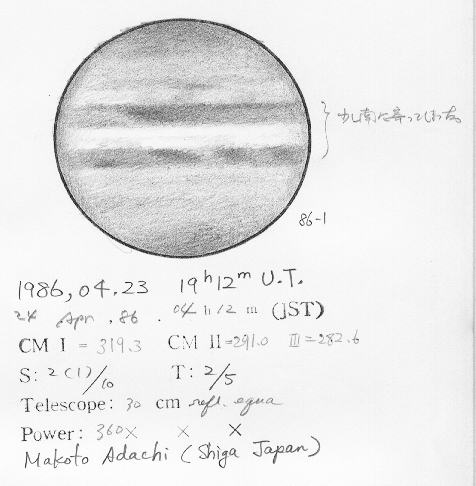 少し南に寄ってしまった。
86-1
1986, 04.23 19h12m U.T.
24 Apr. 86. 04h12m (JST)
CM I = 319.3 CM II=291.0 III=282.6
S: 2(1)/10 T: 2/5
Telescope: 30 cm refl. equa
Power: 360× × ×
Makoto Adachi (Shiga Japan)